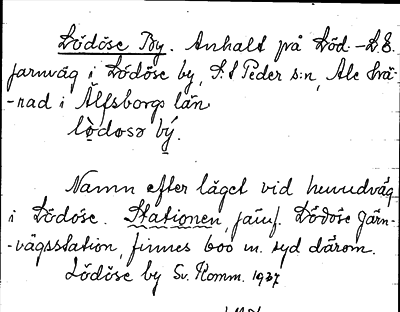 Lödöse By. Anhalt på Löd.-L.E.
jarnväg i Lödöse by, S:t Peder s:n, Ale hä-
-rad i Älfsborgs län
lö̀dosə bý.
Namn efter läget vid huvudväg
i Lödöse. Stationen, jämf. Lödöse Järn-
-vägsstation, finnes 600 m. syd därom.
Lödöse by Sv. Komm. 1937